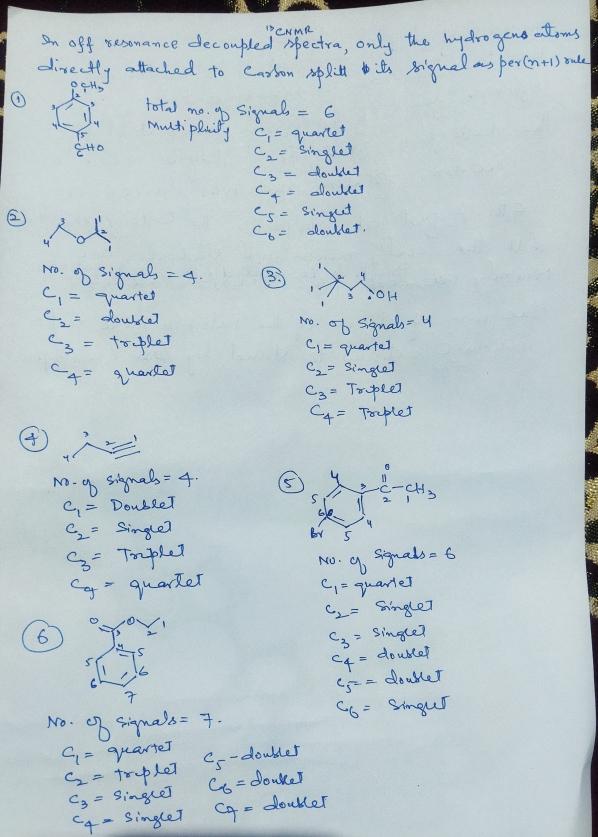 13CNMR
In off resonance decoupled spectra, only the hydrogens atoms
directly attached to Carbon split its signal as per (n+1) rule
① OCH3
1
2
3 3
4 4
5
CHO
6
total no. of Signals = 6
Multiplicity C1 = quartet
C2 = Singlet
C3 = doublet
C4 = doublet
C5 = Singlet
C6 = doublet.
②
4 3 O 2 1 1
No. of Signals = 4.
C1 = quartet
C2 = doublet
C3 = triplet
C4 = quartet
③.
1 1 1 2 3 4 OH
No. of Signals = 4
C1 = quartet
C2 = Singlet
C3 = Triplet
C4 = Triplet
④
4 3 2 1
No. of signals = 4.
C1 = Doublet
C2 = Singlet
C3 = Triplet
C4 = quartet
⑤
O
4 3 C-CH3
5 2 1
6 4
Br 5
No. of Signals = 6
C1 = quartet
C2 = Singlet
C3 = Singlet
C4 = doublet
C5 = doublet
C6 = Singlet
⑥
O O 1
3 2
4
5 5
6 6
7
No. of Signals = 7.
C1 = quartet C5 - doublet
C2 = triplet C6 = doublet
C3 = Singlet C7 = doublet
C4 = Singlet